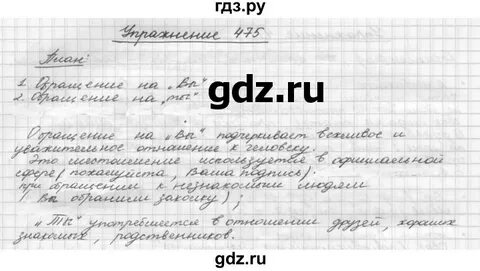 гдз.ру
Упражнение 475
План:
1. Обращение на „Вы"
2. Обращение на „ты"
gdz.ru
Обращение на „Вы" подчеркивает вежливое и
уважительное отношение к человеку.
Это местоимение используется в официальной
сфере (пожалуйста, Ваша подпись).
при обращении к незнакомым людям
( Вы обранили заколку) ;
„Ты" употребляется в отношении друзей, хороших
знакомых, родственников.
gdz.ru